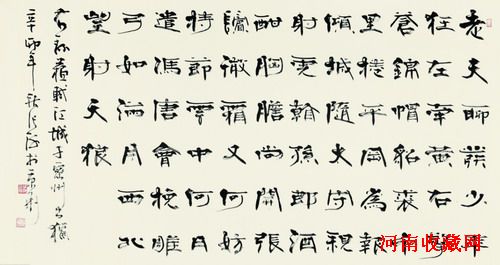 老夫聊發少年
狂左牽黃右擎
蒼錦帽貂裘千
里捲平岡為報
傾城隨太守親
射虎看孫郎酒
酣胸膽尚開張
鬢微霜又何妨
持節雲中何日
遣馮唐會挽雕
弓如滿月西北
望射天狼
右錄蘇軾江城子密州出獵
辛卯年秋
河南收藏网